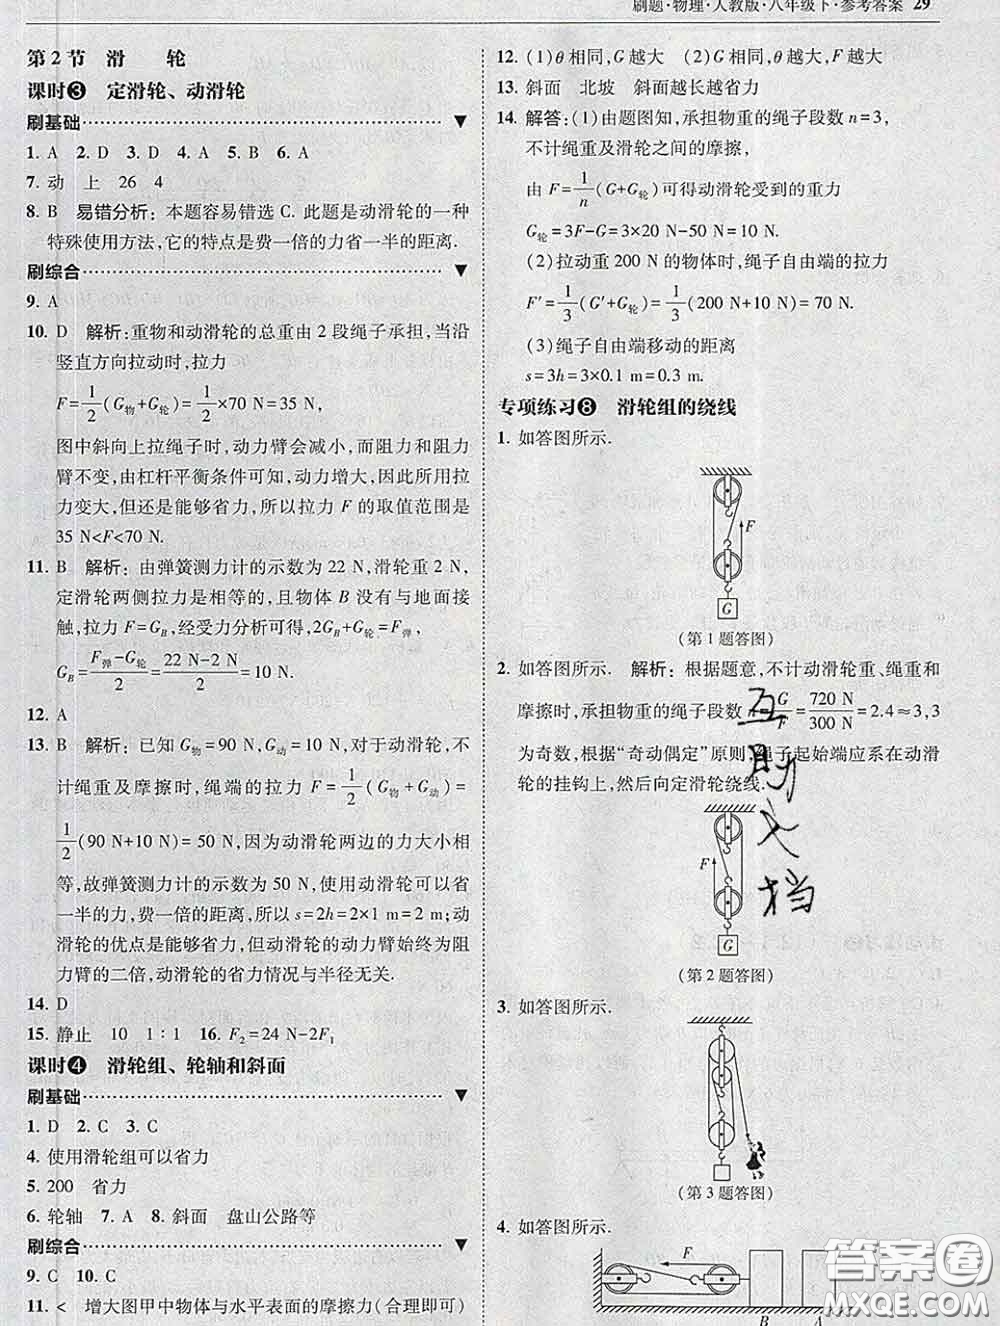 刷题·物理·人教版·八年级下·参考答案 29
第2节 滑 轮
课时❸ 定滑轮、动滑轮
刷基础
1. A 2. D 3. D 4. A 5. B 6. A
7. 动 上 26 4
8. B 易错分析：本题容易错选C. 此题是动滑轮的一种
特殊使用方法，它的特点是费一倍的力省一半的距离.
刷综合
9. A
10. D 解析：重物和动滑轮的总重由2段绳子承担，当沿
竖直方向拉动时，拉力
F=1/2(G物+G轮)=1/2×70 N=35 N，
图中斜向上拉绳子时，动力臂会减小，而阻力和阻力
臂不变，由杠杆平衡条件可知，动力增大，因此所用拉
力变大，但还是能够省力，所以拉力F的取值范围是
35 N<F<70 N.
11. B 解析：由弹簧测力计的示数为22 N，滑轮重2 N，
定滑轮两侧拉力是相等的，且物体B没有与地面接
触，拉力F=G_B，经受力分析可得，2G_B+G轮=F弹，
G_B=(F弹-G轮)/2=(22 N-2 N)/2=10 N.
12. A
13. B 解析：已知G物=90 N，G动=10 N，对于动滑轮，不
计绳重及摩擦时，绳端的拉力F=1/2(G物+G动)=
1/2(90 N+10 N)=50 N，因为动滑轮两边的力大小相
等，故弹簧测力计的示数为50 N，使用动滑轮可以省
一半的力，费一倍的距离，所以s=2h=2×1 m=2 m；动
滑轮的优点是能够省力，但动滑轮的动力臂始终为阻
力臂的二倍，动滑轮的省力情况与半径无关.
14. D
15. 静止 10 1∶1 16. F₂=24 N-2F₁
课时❹ 滑轮组、轮轴和斜面
刷基础
1. D 2. C 3. C
4. 使用滑轮组可以省力
5. 200 省力
6. 轮轴 7. A 8. 斜面 盘山公路等
刷综合
9. C 10. C
11. < 增大图甲中物体与水平表面的摩擦力(合理即可)
12. (1)θ相同，G越大 (2)G相同，θ越大
13. 斜面 北坡 斜面越长越省力
14. 解答：(1)由题图知，承担物重的绳子段数n=3，
不计绳重及滑轮之间的摩擦，
由F=1/n(G+G轮)可得动滑轮受到的重力
G轮=3F-G=3×20 N-50 N=10 N.
(2)拉动重200 N的物体时，绳子自由端的拉力
F′=1/3(G′+G轮)=1/3(200 N+10 N)=70 N.
(3)绳子自由端移动的距离
s=3h=3×0.1 m=0.3 m.
专项练习❽ 滑轮组的绕线
1. 如答图所示.
F
G
(第1题答图)
2. 如答图所示. 解析：根据题意，不计动滑轮重、绳重和
摩擦时，承担物重的绳子段数n=G/F=720 N/300 N=2.4≈3，3
为奇数，根据“奇动偶定”原则，绳子起始端应系在动滑
轮的挂钩上，然后向定滑轮绕线.
F
G
(第2题答图)
3. 如答图所示.
(第3题答图)
4. 如答图所示.
F
B A
答案圈
MXQE.COM